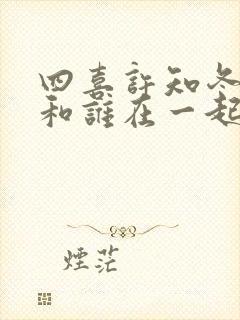 四喜許知冬
和誰在一起
煙茫